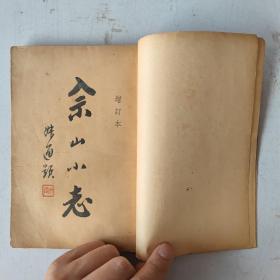 增訂本
佘山小志
姚通題